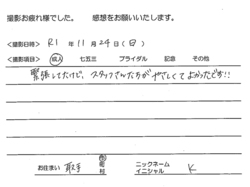 撮影お疲れ様でした。　感想をお願いいたします。
<撮影日時>　R1年11月24日(日)
<撮影項目>　成人　七五三　ブライダル　記念　その他
緊張してたけど、スタッフさんたちがやさしくてよかったです!!
お住まい　取手　市　町　村　ニックネーム　イニシャル　K